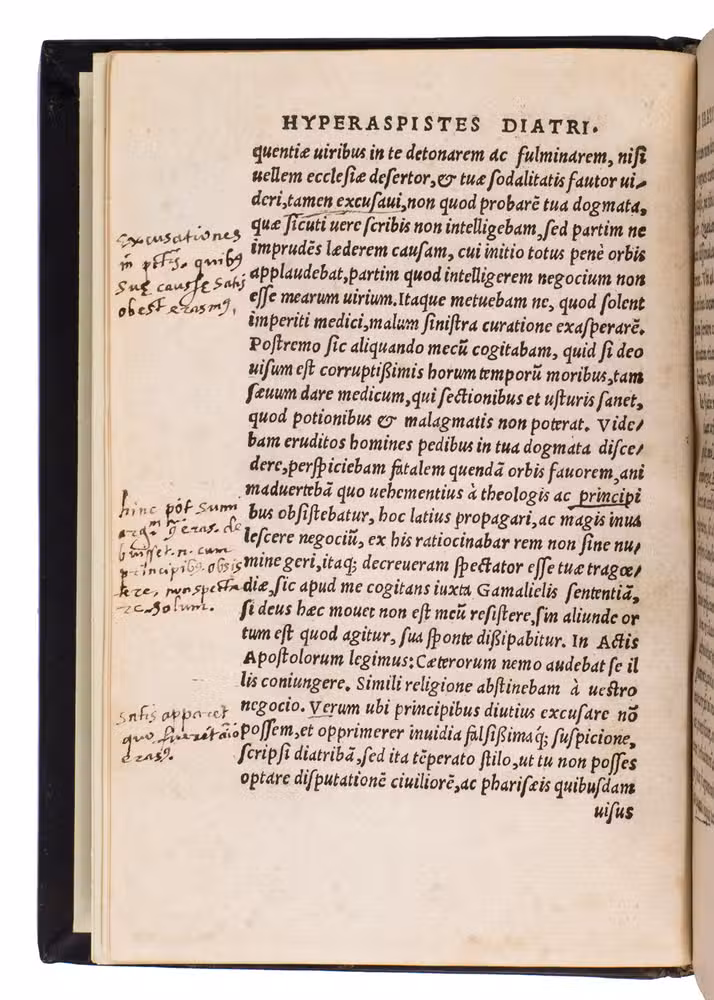 HYPERASPISTES DIATRI.
quentiæ uiribus in te detonarem ac fulminarem, nisi
uellem ecclesiæ desertor, & tuæ sodalitatis fautor ui/
deri, tamen excusaui, non quod probarē tua dogmata,
quæ sicuti uere scribis non intelligebam, sed partim ne
imprudēs læderem causam, cui initio totus penè orbis
applaudebat, partim quod intelligerem negocium non
esse mearum uirium. Itaque metuebam ne, quod solent
imperiti medici, malum sinistra curatione exasperarē.
Postremo sic aliquando mecū cogitabam, quid si deo
uisum est corruptißimis horum temporū moribus, tam
sæuum dare medicum, qui sectionibus et usturis sanet,
quod potionibus & malagmatis non poterat. Vide/
bam eruditos homines pedibus in tua dogmata disce/
dere, perspiciebam fatalem quendā orbis fauorem, ani
maduertebā quo uehementius à theologis ac principi
bus obsistebatur, hoc latius propagari, ac magis inua
lescere negociū, ex his ratiocinabar rem non sine nu/
mine geri, itaq; decreueram spectator esse tuæ tragœ/
diæ, sic apud me cogitans iuxta Gamalielis sententiā,
si deus hæc mouet non est meū resistere, sin aliunde or
tum est quod agitur, sua sponte dißipabitur. In Actis
Apostolorum legimus: Cæterorum nemo audebat se il
lis coniungere. Simili religione abstinebam à uestro
negocio. Verum ubi principibus diutius excusare nō
possem, et opprimerer inuidia falsißimaq; suspicione,
scripsi diatribā, sed ita tēperato stilo, ut tu non posses
optare disputationē ciuiliorē, ac pharisæis quibusdam
uisus
Excusationes
quibꝰ
Suę causę Satis
obest erasmꝰ.
hinc pōt Sumi
eras. de
buisset .n. cum
principibꝰ obsis
tere, non specta
re Solum.
Satis apparet
quo fuerit
erasꝰ.